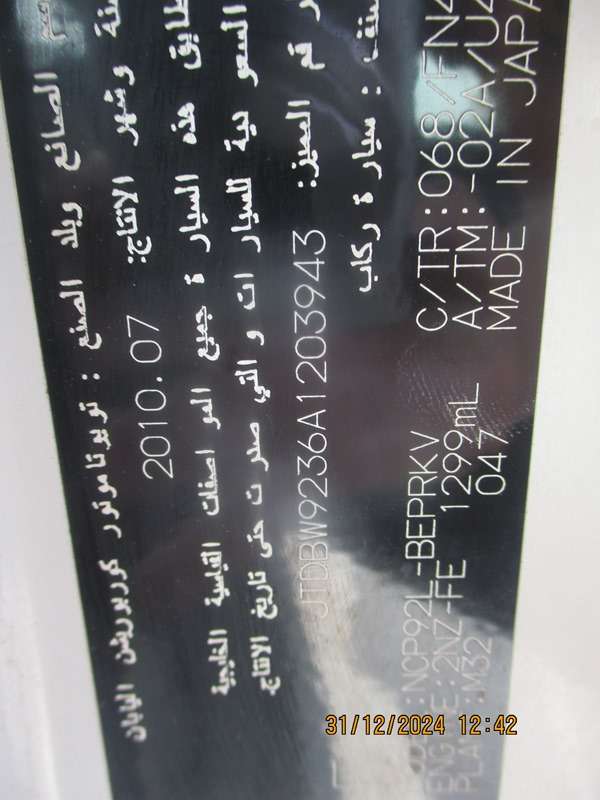 الصانع وبلد الصنع : تويوتا موتور كوربوريشن اليابان
وشهر الانتاج: 2010.07
هذه السيارة جميع المواصفات القياسية الخليجية
السعودية للسيارات والتي صدرت حتى تاريخ الانتاج.
المميز: JTDBW9236A1203943
: سيارة ركاب
:NCP92L-BEPRKV C/TR:068/FN4
ENGINE:2NZ-FE 1299mL A/TM:-02A/U4
PLANT:M32 047 MADE IN JAPA
31/12/2024 12:42